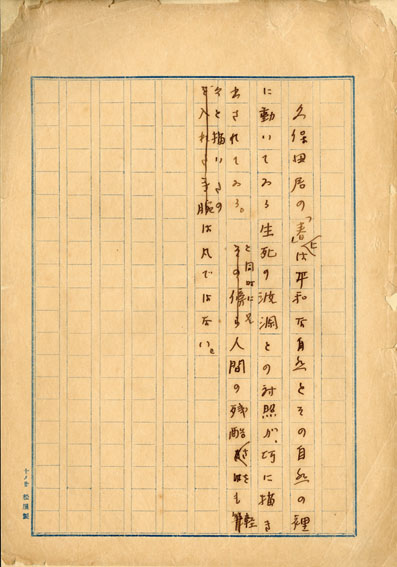 久保田居の「春」には平和な自然とその自然の裡
に動いてゐる生死の波瀾との対照が、巧に描き
と同時に又
出されてゐる。その傍ら人間の残酷さをも軽
々と描いたの
を入れた手腕は凡ではない。
十ノ廿 松屋製